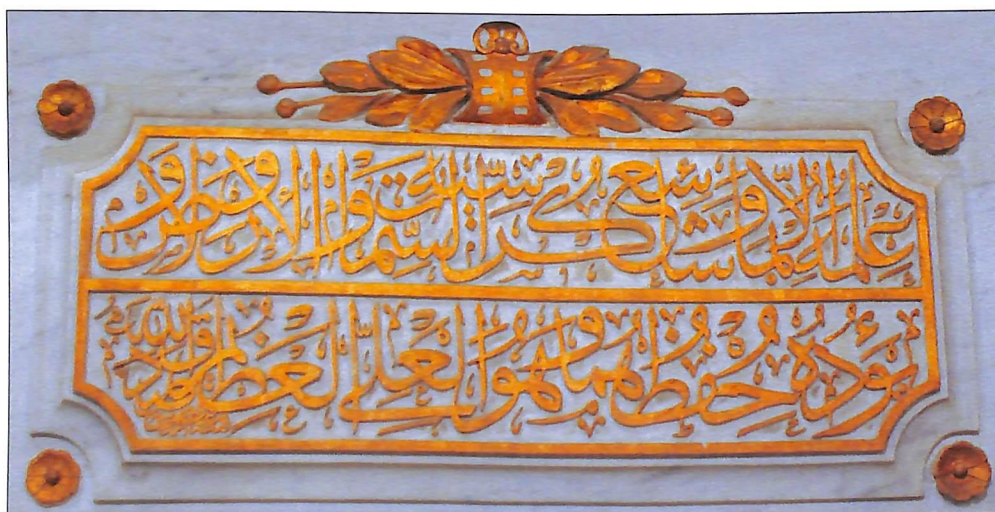 عِلْمِهِ إِلَّا بِمَا شَاءَ وَسِعَ كُرْسِيُّهُ السَّمٰوَاتِ وَالْأَرْضَ وَلَا
يَؤُدُهُ حِفْظُهُمَا وَهُوَ الْعَلِيُّ الْعَظِيمُ صدق الله